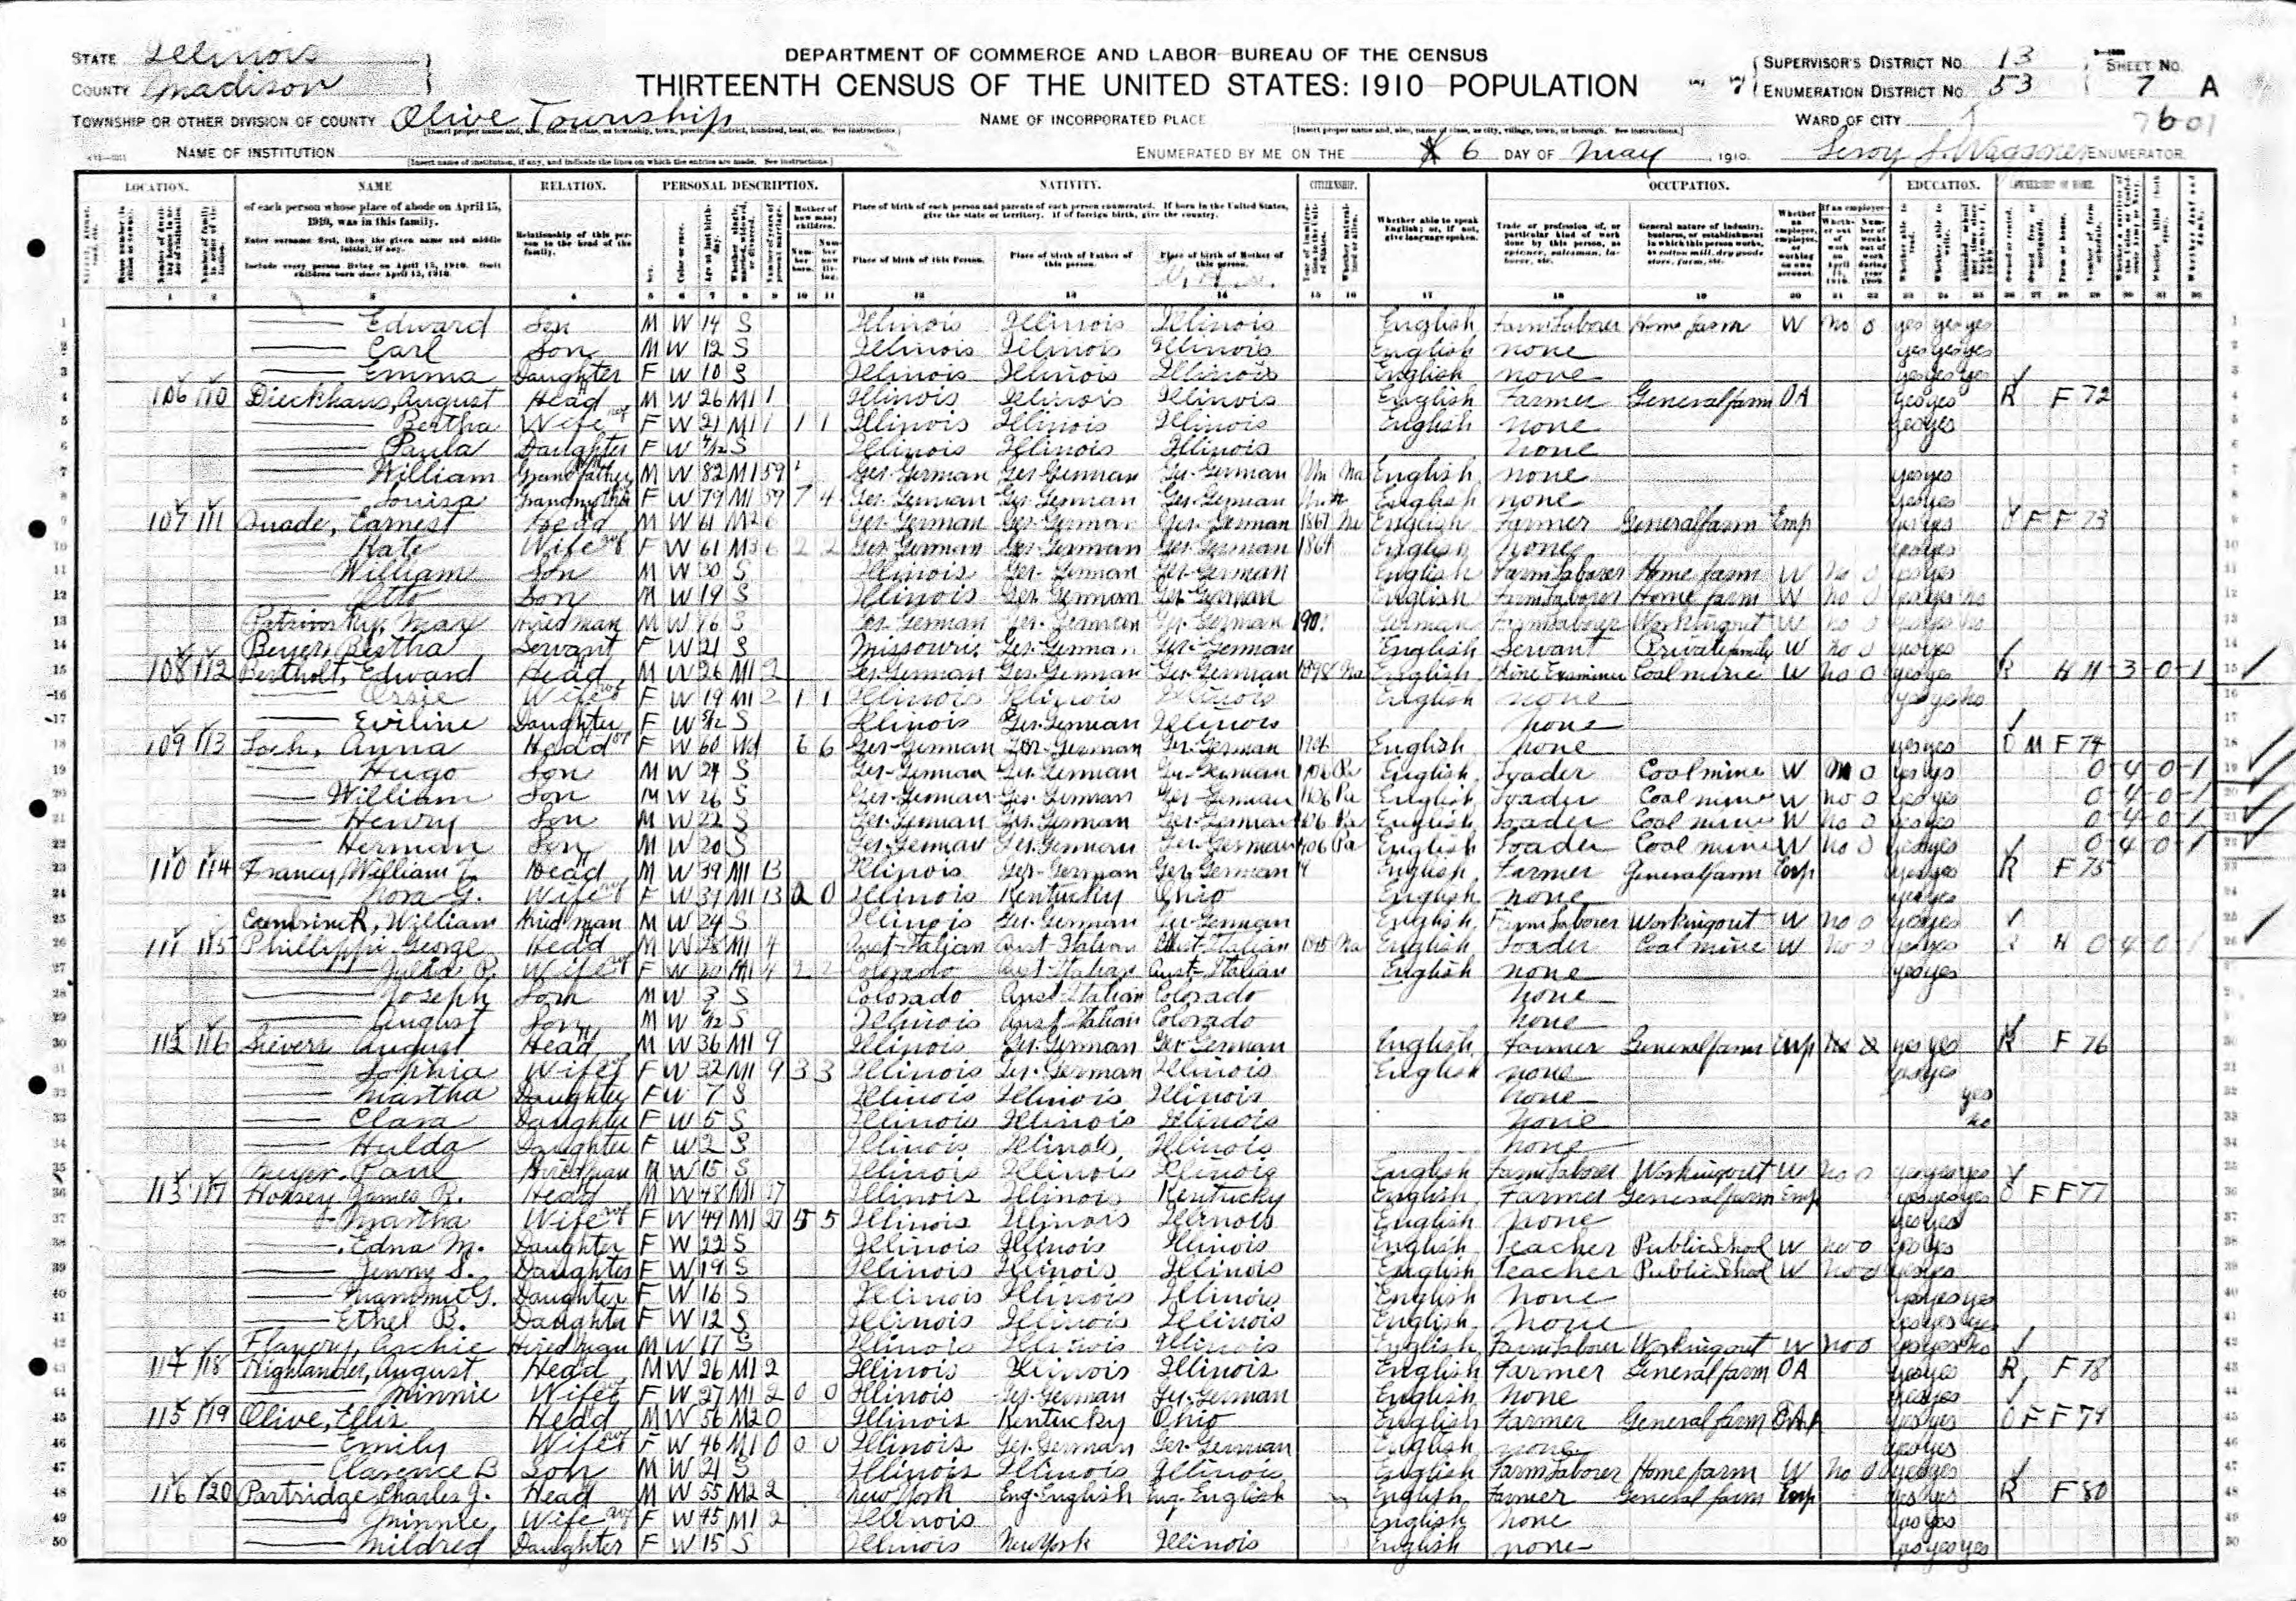 STATE Illinois
COUNTY Madison
DEPARTMENT OF COMMERCE AND LABOR–BUREAU OF THE CENSUS
THIRTEENTH CENSUS OF THE UNITED STATES: 1910–POPULATION
SUPERVISOR'S DISTRICT No. 13
ENUMERATION DISTRICT No. 53
SHEET No. 7 A
TOWNSHIP OR OTHER DIVISION OF COUNTY Olive Township
NAME OF INCORPORATED PLACE
WARD OF CITY
NAME OF INSTITUTION
ENUMERATED BY ME ON THE 6 DAY OF May, 1910. Leroy J. Waggoner ENUMERATOR.
LOCATION. NAME RELATION. PERSONAL DESCRIPTION. NATIVITY. CITIZENSHIP. OCCUPATION. EDUCATION. OWNERSHIP OF HOME.
of each person whose place of abode on April 15, 1910, was in this family.
Enter surname first, then the given name and middle initial, if any.
Include every person living on April 15, 1910. Omit children born since April 15, 1910.
Relationship of this person to the head of the family.
Place of birth of each person and parents of each person enumerated. If born in the United States, give the state or territory. If of foreign birth, give the country.
Place of birth of this Person. Place of birth of Father of this person. Place of birth of Mother of this person.
Whether able to speak English; or, if not, give language spoken.
1 Edward Son M W 14 S Illinois Illinois Illinois English Farm Laborer Home farm W no 0 yes yes yes
2 Carl Son M W 12 S Illinois Illinois Illinois English none yes yes yes
3 Emma Daughter F W 10 S Illinois Illinois Illinois English none yes yes yes
4 106 110 Dieckhaus, August Head M W 26 M1 1 Illinois Illinois Illinois English Farmer General farm OA yes yes R F 72
5 Bertha Wife F W 21 M1 1 1 1 Illinois Illinois Illinois English none yes yes
6 Paula Daughter F W S Illinois Illinois Illinois none
7 William Grandfather M W 82 M1 59 Ger-German Ger-German Ger-German Un Na English none yes yes
8 Louisa Grandmother F W 79 M1 59 7 4 Ger-German Ger-German Ger-German Un English none yes yes
9 107 111 Quade, Earnest Head M W 61 M2 6 Ger-German Ger-German Ger-German 1867 Na English Farmer General farm Emp yes yes O F F 73
10 Kate Wife F W 61 M3 6 2 2 Ger-German Ger-German Ger-German English none yes yes
11 William Son M W 30 S Illinois Ger-German Ger-German English Farm Laborer Home farm W no 0 yes yes
12 Otto Son M W 19 S Illinois Ger-German Ger-German English Farm Laborer Home farm W no 0 yes yes no
13 Max Hired man M W 16 S Ger-German Ger-German Ger-German German Farm Laborer Working out W no 0 yes yes no
14 Beyer, Bertha Servant F W 21 S Missouri Ger-German Ger-German English Servant Private family W no 0 yes yes
15 108 112 Bertholt, Edward Head M W 26 M1 2 Ger-German Ger-German Ger-German 1898 Na English Mine Examiner Coal mine W no 0 yes yes R H H-3-0-1
16 Ossie Wife F W 19 M1 2 1 1 Illinois Illinois Illinois English none yes yes no
17 Eviline Daughter F W S Illinois Ger-German Illinois none
18 109 113 Loch, Anna Head F W 60 Wd 6 6 Ger-German Ger-German Ger-German 1906 English none yes yes O M F 74
19 Hugo Son M W 24 S Ger-German Ger-German Ger-German 1906 Pa English Loader Coal mine W no 0 yes yes 0-4-0-1
20 William Son M W 26 S Ger-German Ger-German Ger-German 1906 Pa English Loader Coal mine W no 0 yes yes 0-4-0-1
21 Henry Son M W 22 S Ger-German Ger-German Ger-German 1906 Pa English Loader Coal mine W no 0 yes yes 0-4-0-1
22 Herman Son M W 20 S Ger-German Ger-German Ger-German 1906 Pa English Loader Coal mine W no 0 yes yes 0 4-0-1
23 110 114 William Head M W 39 M1 13 Illinois Ger-German Ger-German English Farmer General farm Emp yes yes R F 75
24 Nora G. Wife F W 37 M1 13 0 0 Illinois Kentucky Ohio English none yes yes
25 William Hired man M W 24 S Illinois Ger-German Ger-German English Farm Laborer Working out W no 0 yes yes
26 111 115 Phillippi, George Head M W 28 M1 4 Aust-Italian Aust-Italian Aust-Italian Na English Loader Coal mine W no 0 yes yes R H 0 4 0 1
27 Wife F W 20 M1 4 2 2 Colorado Aust-Italian Aust-Italian English none yes yes
28 Joseph Son M W 3 S Colorado Aust-Italian Colorado none
29 August Son M W S Illinois Aust-Italian Colorado none
30 112 116 Sievers August Head M W 36 M1 9 Illinois Ger-German Ger-German English Farmer General farm Emp yes yes R F 76
31 Sophia Wife F W 32 M1 9 3 3 Illinois Ger-German Illinois English none yes yes
32 Martha Daughter F W 7 S Illinois Illinois Illinois none yes
33 Clara Daughter F W 5 S Illinois Illinois Illinois none no
34 Hulda Daughter F W 2 S Illinois Illinois Illinois none
35 Meyer, Paul Hired man M W 15 S Illinois Illinois Illinois English Farm Laborer Working out W no 0 yes yes yes
36 113 117 Hoxsey, James R. Head M W 48 M1 27 Illinois Illinois Kentucky English Farmer General farm Emp yes yes yes O F F 77
37 Martha Wife F W 49 M1 27 5 5 Illinois Illinois Illinois English none yes yes
38 Edna M. Daughter F W 22 S Illinois Illinois Illinois English Teacher Public School W no 0 yes yes
39 Jenny S. Daughter F W 19 S Illinois Illinois Illinois English Teacher Public School W no 0 yes yes
40 Nammie G. Daughter F W 16 S Illinois Illinois Illinois English none yes yes yes
41 Ethel B. Daughter F W 12 S Illinois Illinois Illinois English none yes yes yes
42 Flavery, Archie Hired man M W 17 S Illinois Illinois Illinois English Farm Laborer Working out W no 0 yes yes no
43 114 118 Highlander, August Head M W 26 M1 2 Illinois Illinois Illinois English Farmer General farm OA yes yes R F 78
44 Minnie Wife F W 27 M1 2 0 0 Illinois Ger-German Ger-German English none yes yes
45 115 119 Olive, Ellis Head M W 56 M2 0 Illinois Kentucky Ohio English Farmer General farm OA yes yes O F F 79
46 Emily Wife F W 46 M1 0 0 0 Illinois Ger-German Ger-German English none yes yes
47 Clarence B Son M W 21 S Illinois Illinois Illinois English Farm Laborer Home farm W no 0 yes yes
48 116 120 Partridge, Charles J. Head M W 55 M2 2 New York Eng-English Eng-English English Farmer General farm Emp yes yes R F 80
49 Minnie Wife F W 45 M1 2 Illinois English none yes yes
50 Mildred Daughter F W 15 S Illinois New York Illinois English none yes yes yes